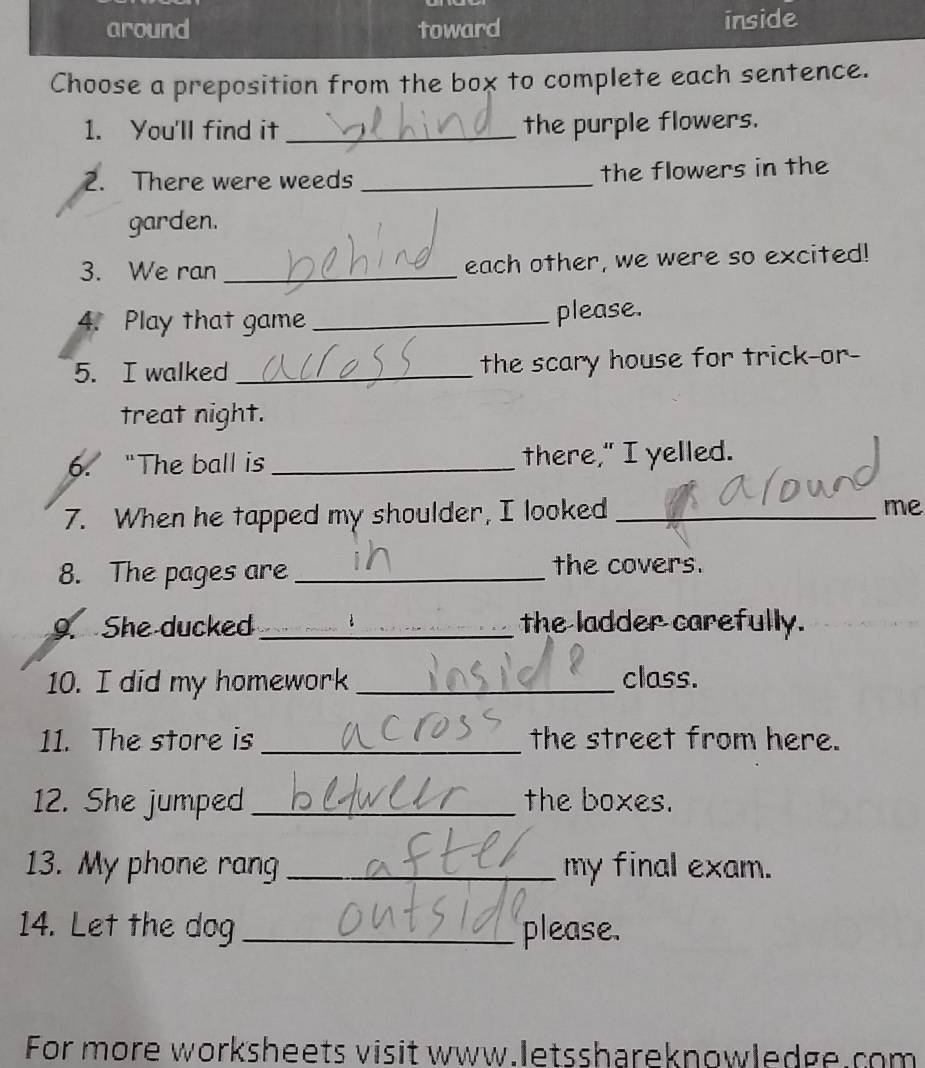 around toward inside
Choose a preposition from the box to complete each sentence.
1. You'll find it behind the purple flowers.
2. There were weeds ______ the flowers in the
garden.
3. We ran behind each other, we were so excited!
4. Play that game ______ please.
5. I walked across the scary house for trick-or-
treat night.
6. "The ball is ______ there," I yelled.
7. When he tapped my shoulder, I looked around me
8. The pages are in the covers.
9. She ducked ______ the ladder carefully.
10. I did my homework inside class.
11. The store is across the street from here.
12. She jumped between the boxes.
13. My phone rang after my final exam.
14. Let the dog outside please.
For more worksheets visit www.letsshareknowledge.com